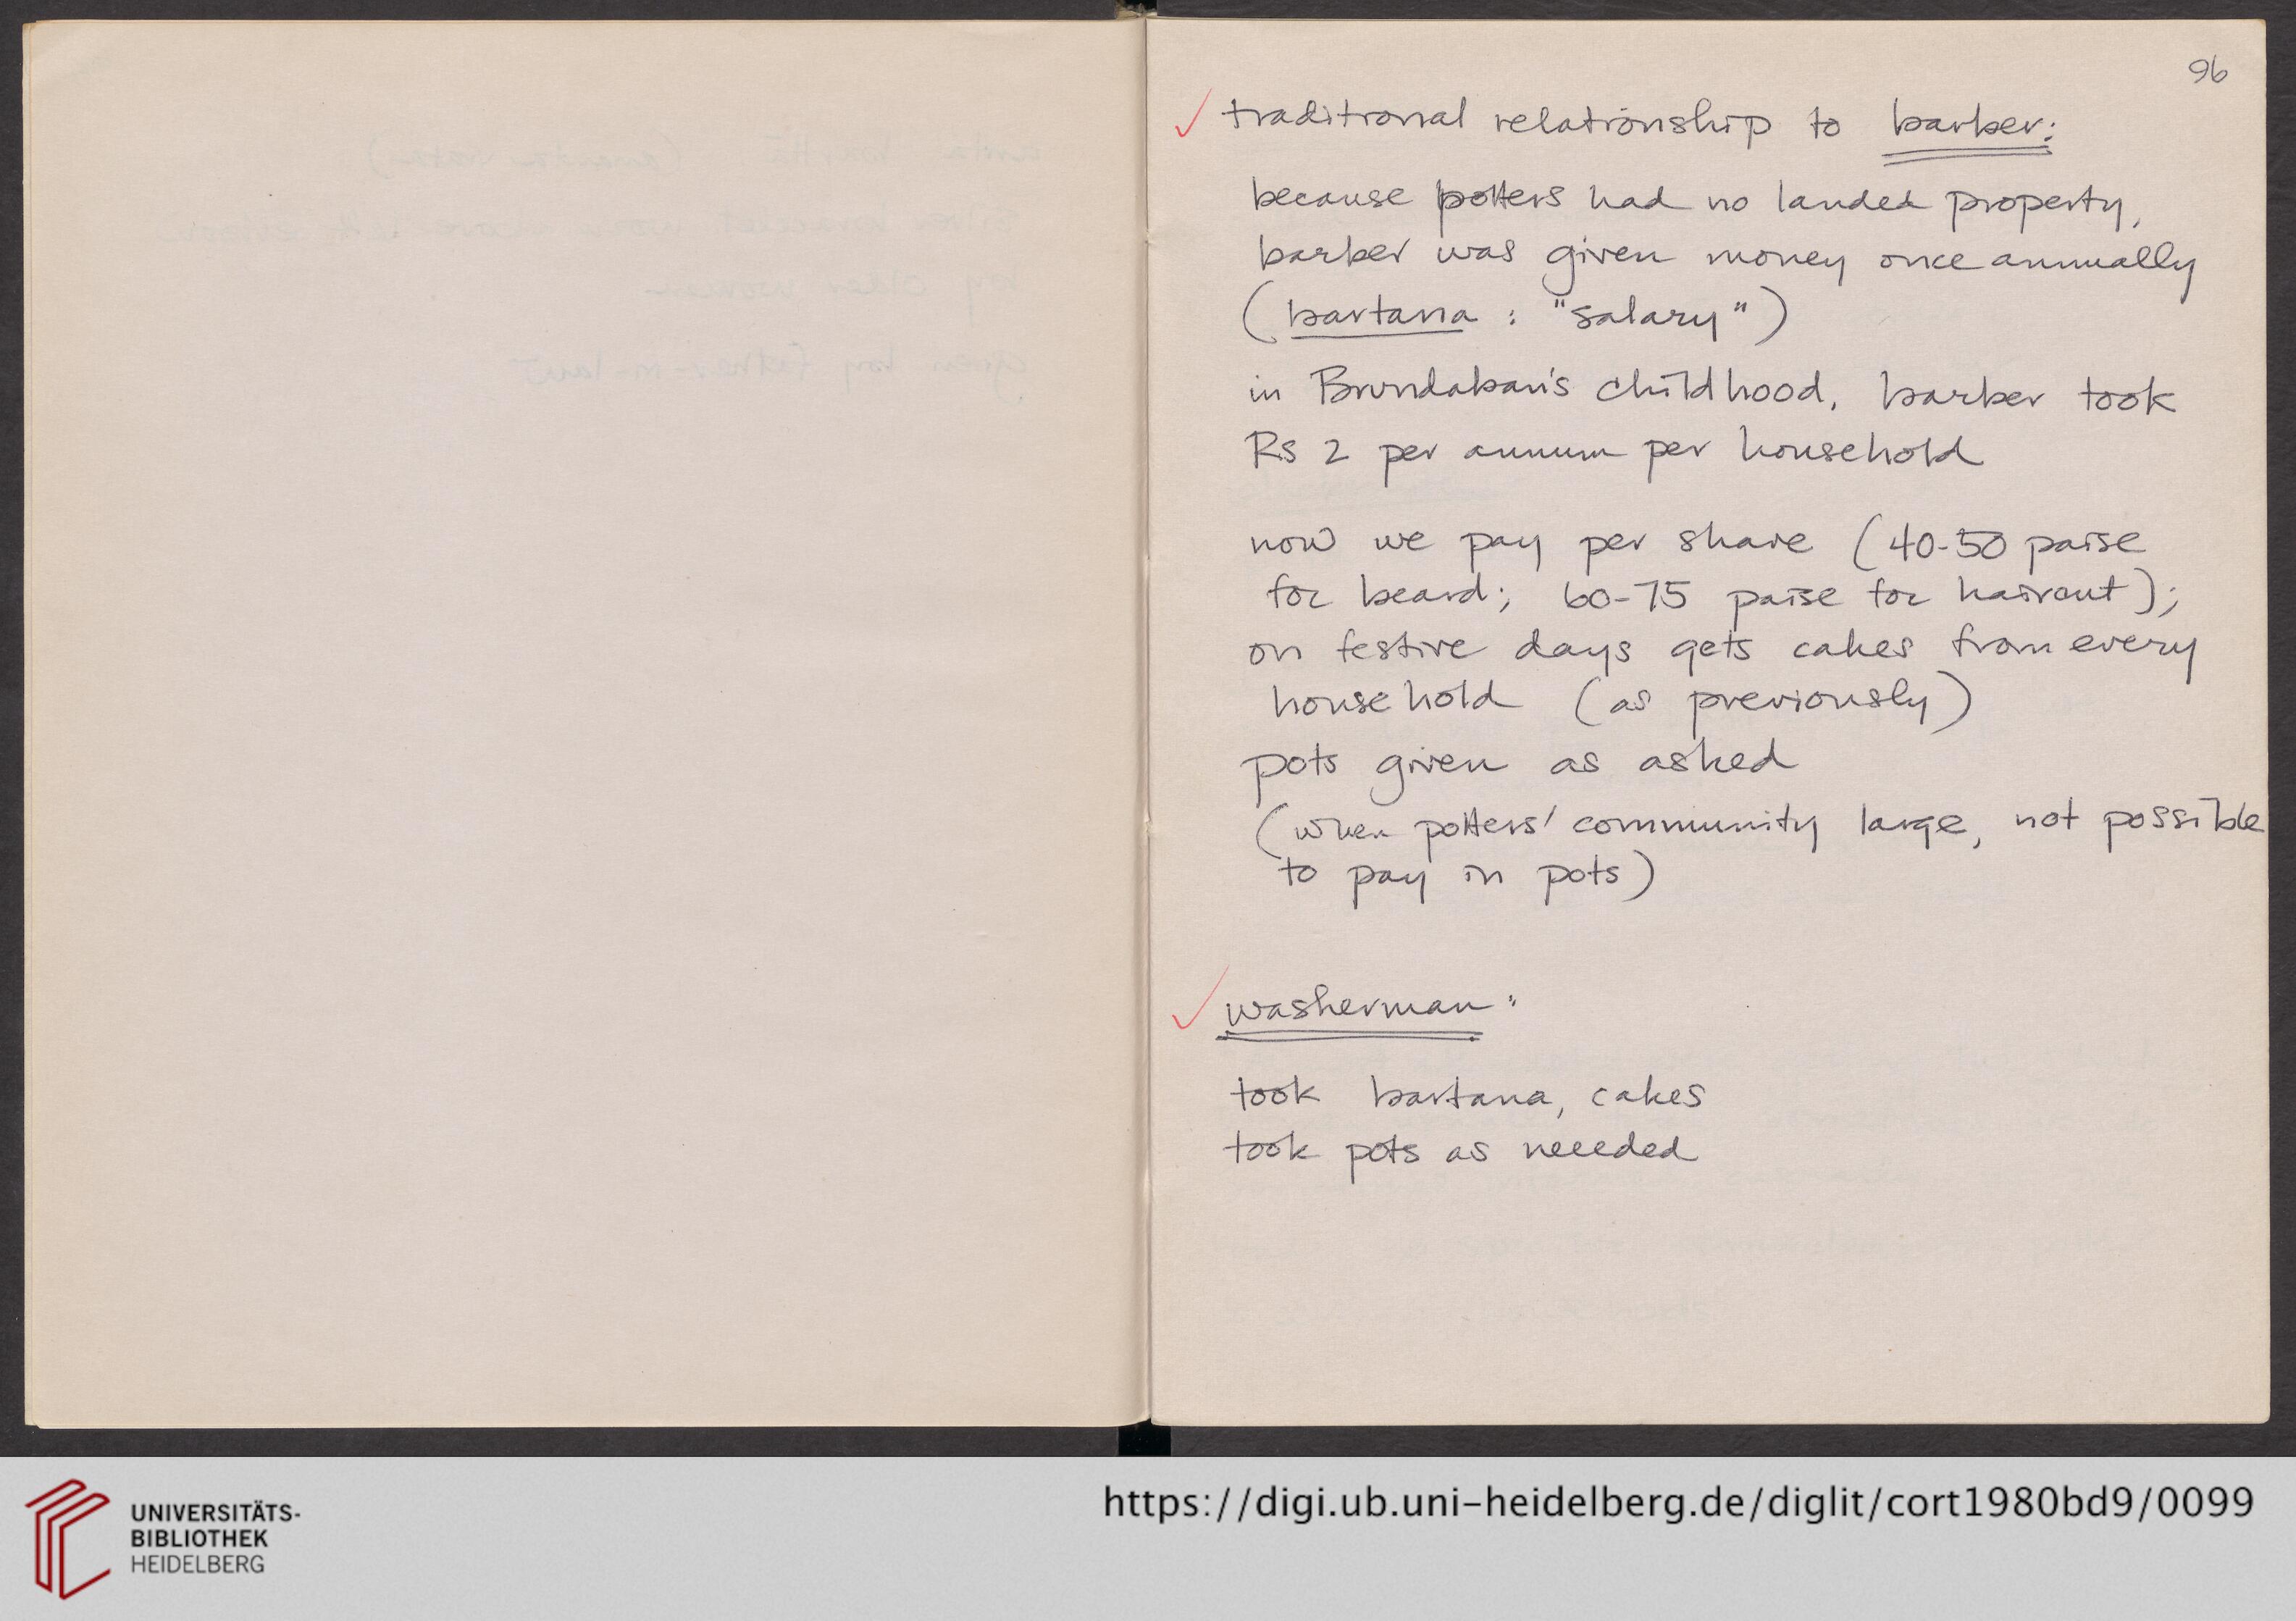 96
✓ traditional relationship to barber:
because potters had no landed property,
barber was given money once annually
(bartana : "salary")
in Brundaban's childhood, barber took
Rs 2 per annum per household
now we pay per shave (40-50 paise
for beard; 60-75 paise for haircut);
on festive days gets cakes from every
household (as previously)
pots given as asked
(when potters' community large, not possible
to pay in pots)
✓ washerman:
took bartana, cakes
took pots as needed
UNIVERSITÄTS-
BIBLIOTHEK
HEIDELBERG
https://digi.ub.uni-heidelberg.de/diglit/cort1980bd9/0099